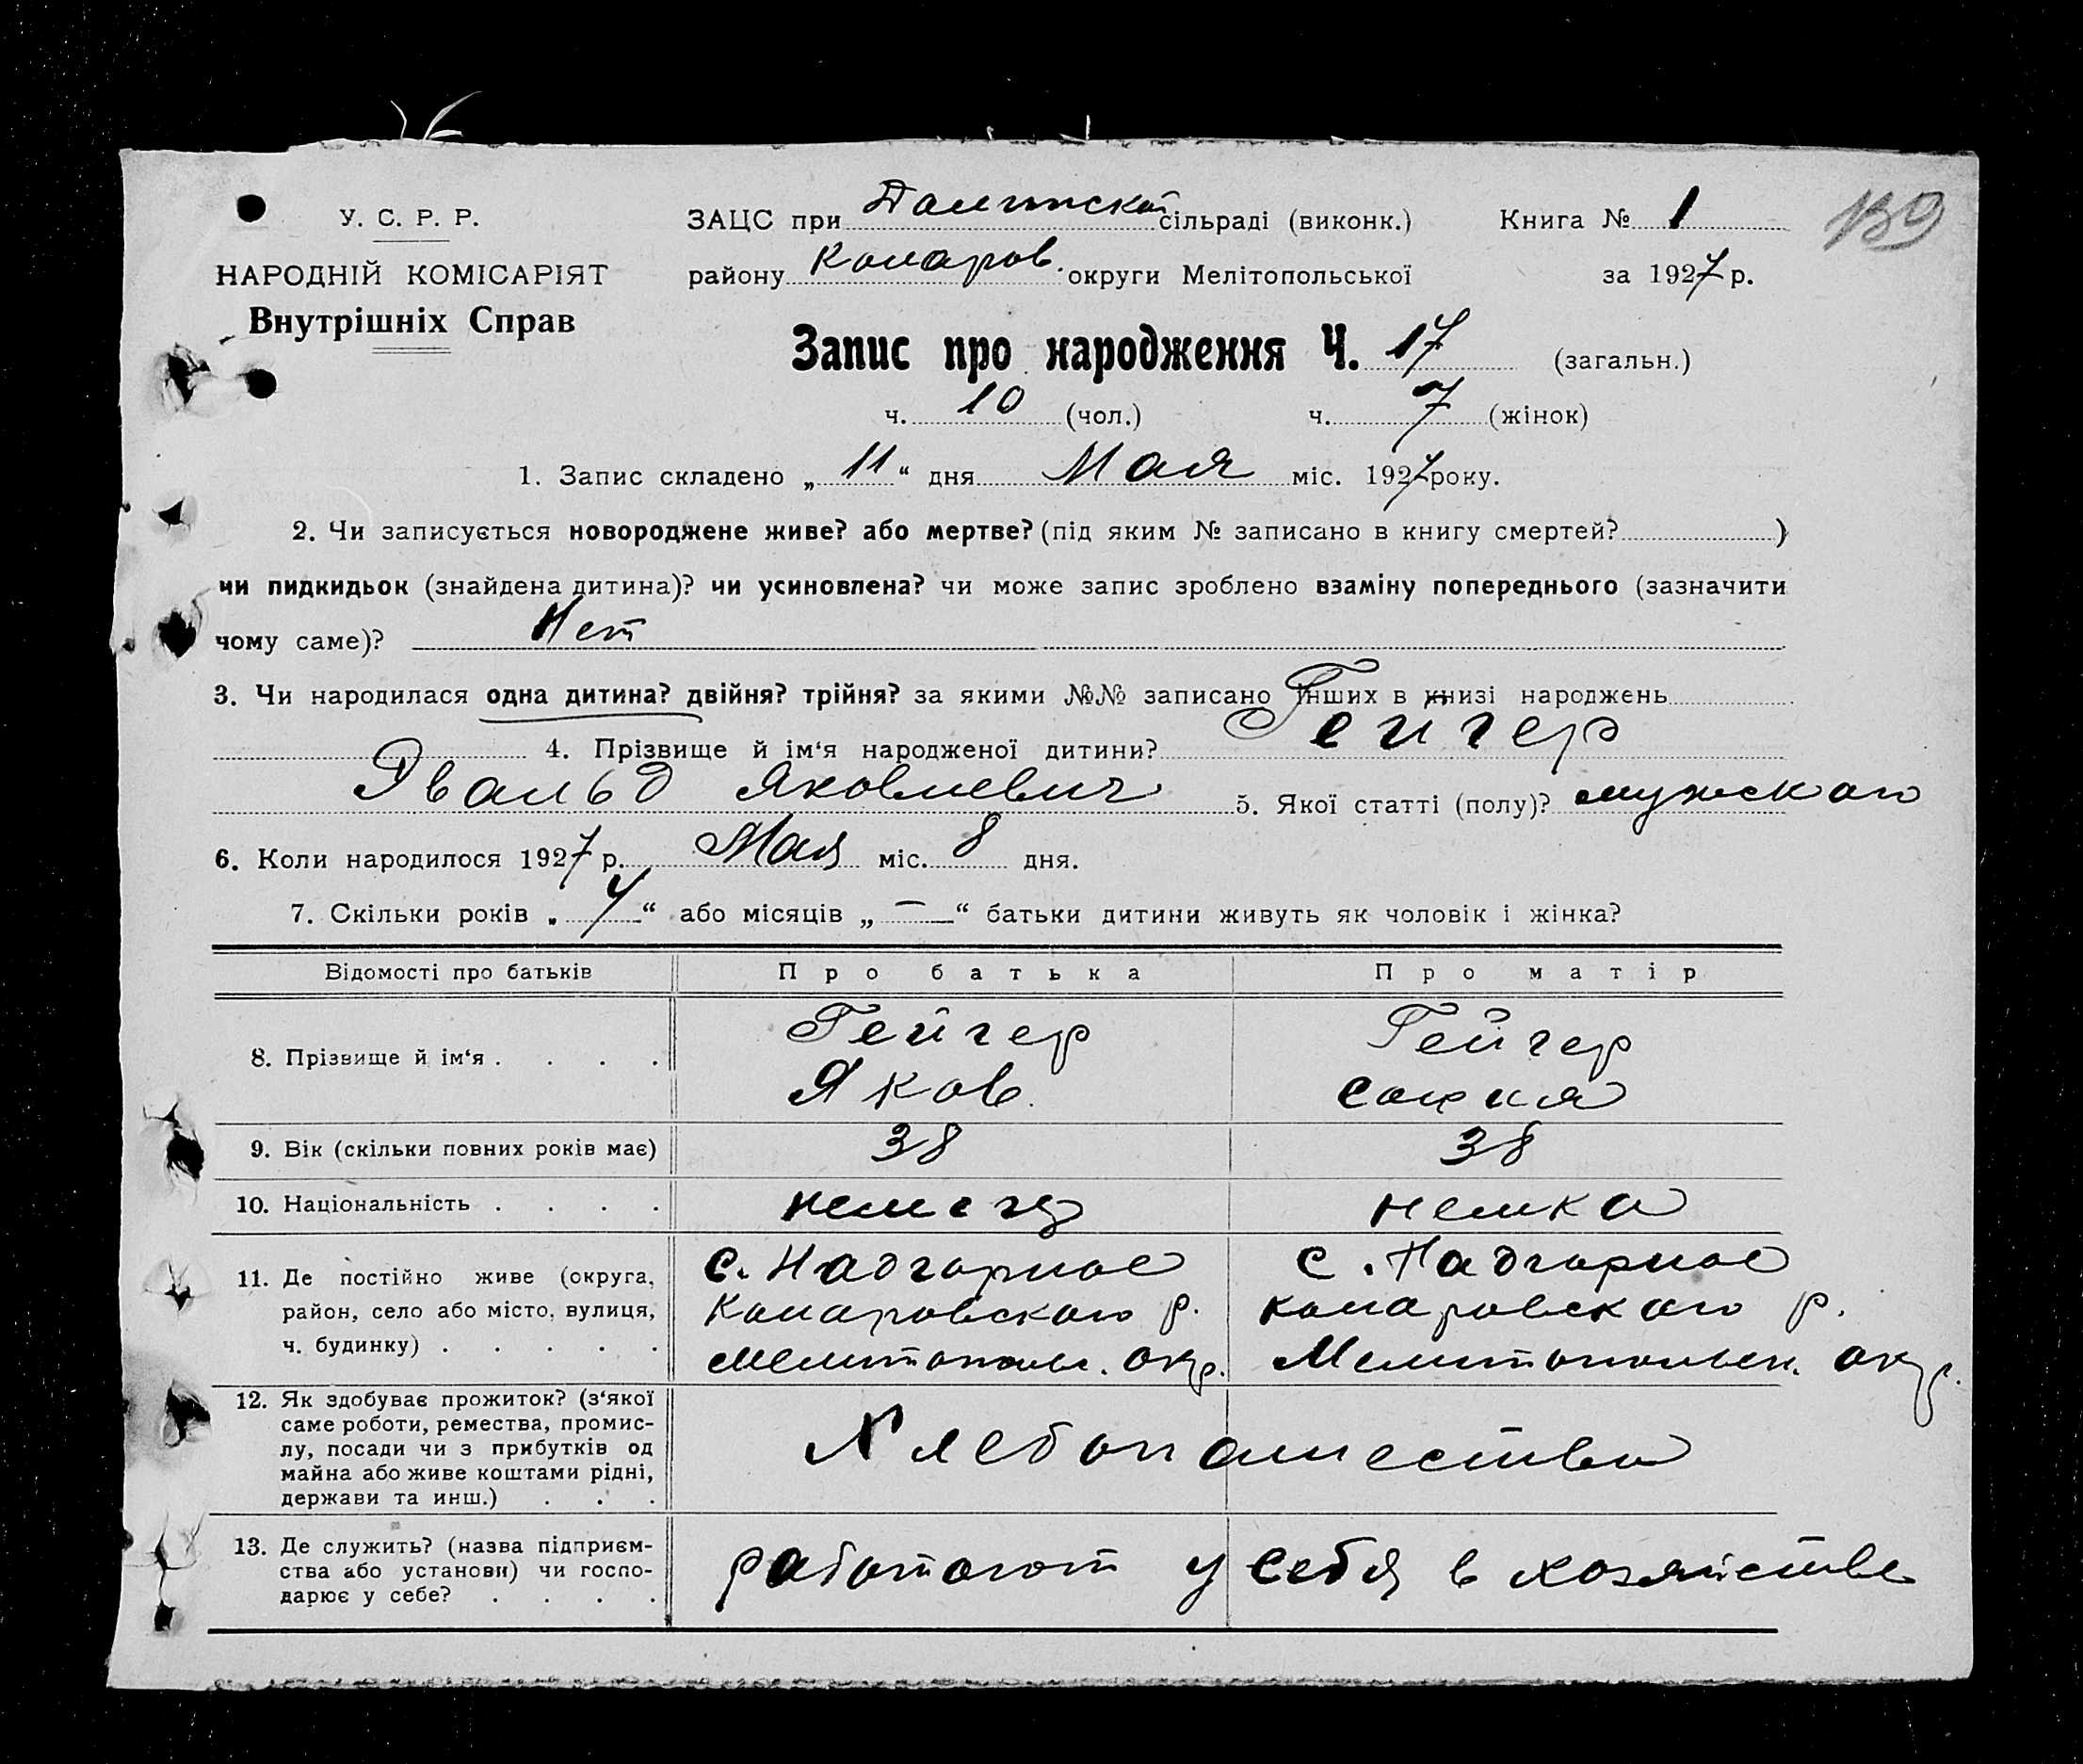 У. С. Р. Р.
НАРОДНІЙ КОМІСАРІЯТ
Внутрішніх Справ
ЗАЦС при сільраді (виконк.) Книга № 1
139
району Комаров. округи Мелітопольської за 1927 р.
Запис про народження Ч. 17 (загальн.)
ч. 10 (чол.) ч. 7 (жінок)
1. Запис складено „ 11 “ дня Мая міс. 1927 року.
2. Чи записується новороджене живе? або мертве? (під яким № записано в книгу смертей? )
чи пидкидьок (знайдена дитина)? чи усиновлена? чи може запис зроблено взаміну попереднього (зазначити
чому саме)? Нет
3. Чи народилася одна дитина? двійня? трійня? за якими №№ записано інших в книзі народжень
4. Прізвище й ім‘я народженої дитини? Гейгер
Эвальд Яковлевич 5. Якої статті (полу)? мужского
6. Коли народилося 1927 р. Мая міс. 8 дня.
7. Скільки років „ 4 “ або місяців „ — “ батьки дитини живуть як чоловік і жінка?
Відомості про батьків Про батька Про матір
8. Прізвище й ім‘я . . . . Гейгер Яков. Гейгер София
9. Вік (скільки повних років має) 38 38
10. Національність . . . . немец немка
11. Де постійно живе (округа, с. Надгорное с. Надгорное
район, село або місто, вулиця, Комаровского р. Комаровского р.
ч. будинку) . . . . . Мелитополь. окр. Мелитопольск. окр.
12. Як здобуває прожиток? (з‘якої
саме роботи, ремества, промис-
лу, посади чи з прибутків од
майна або живе коштами рідні,
держави та инш.) . . . Хлебопашество
13. Де служить? (назва підприєм-
ства або установи) чи госпо-
дарює у себе? . . . . работают у себя в хозяйстве